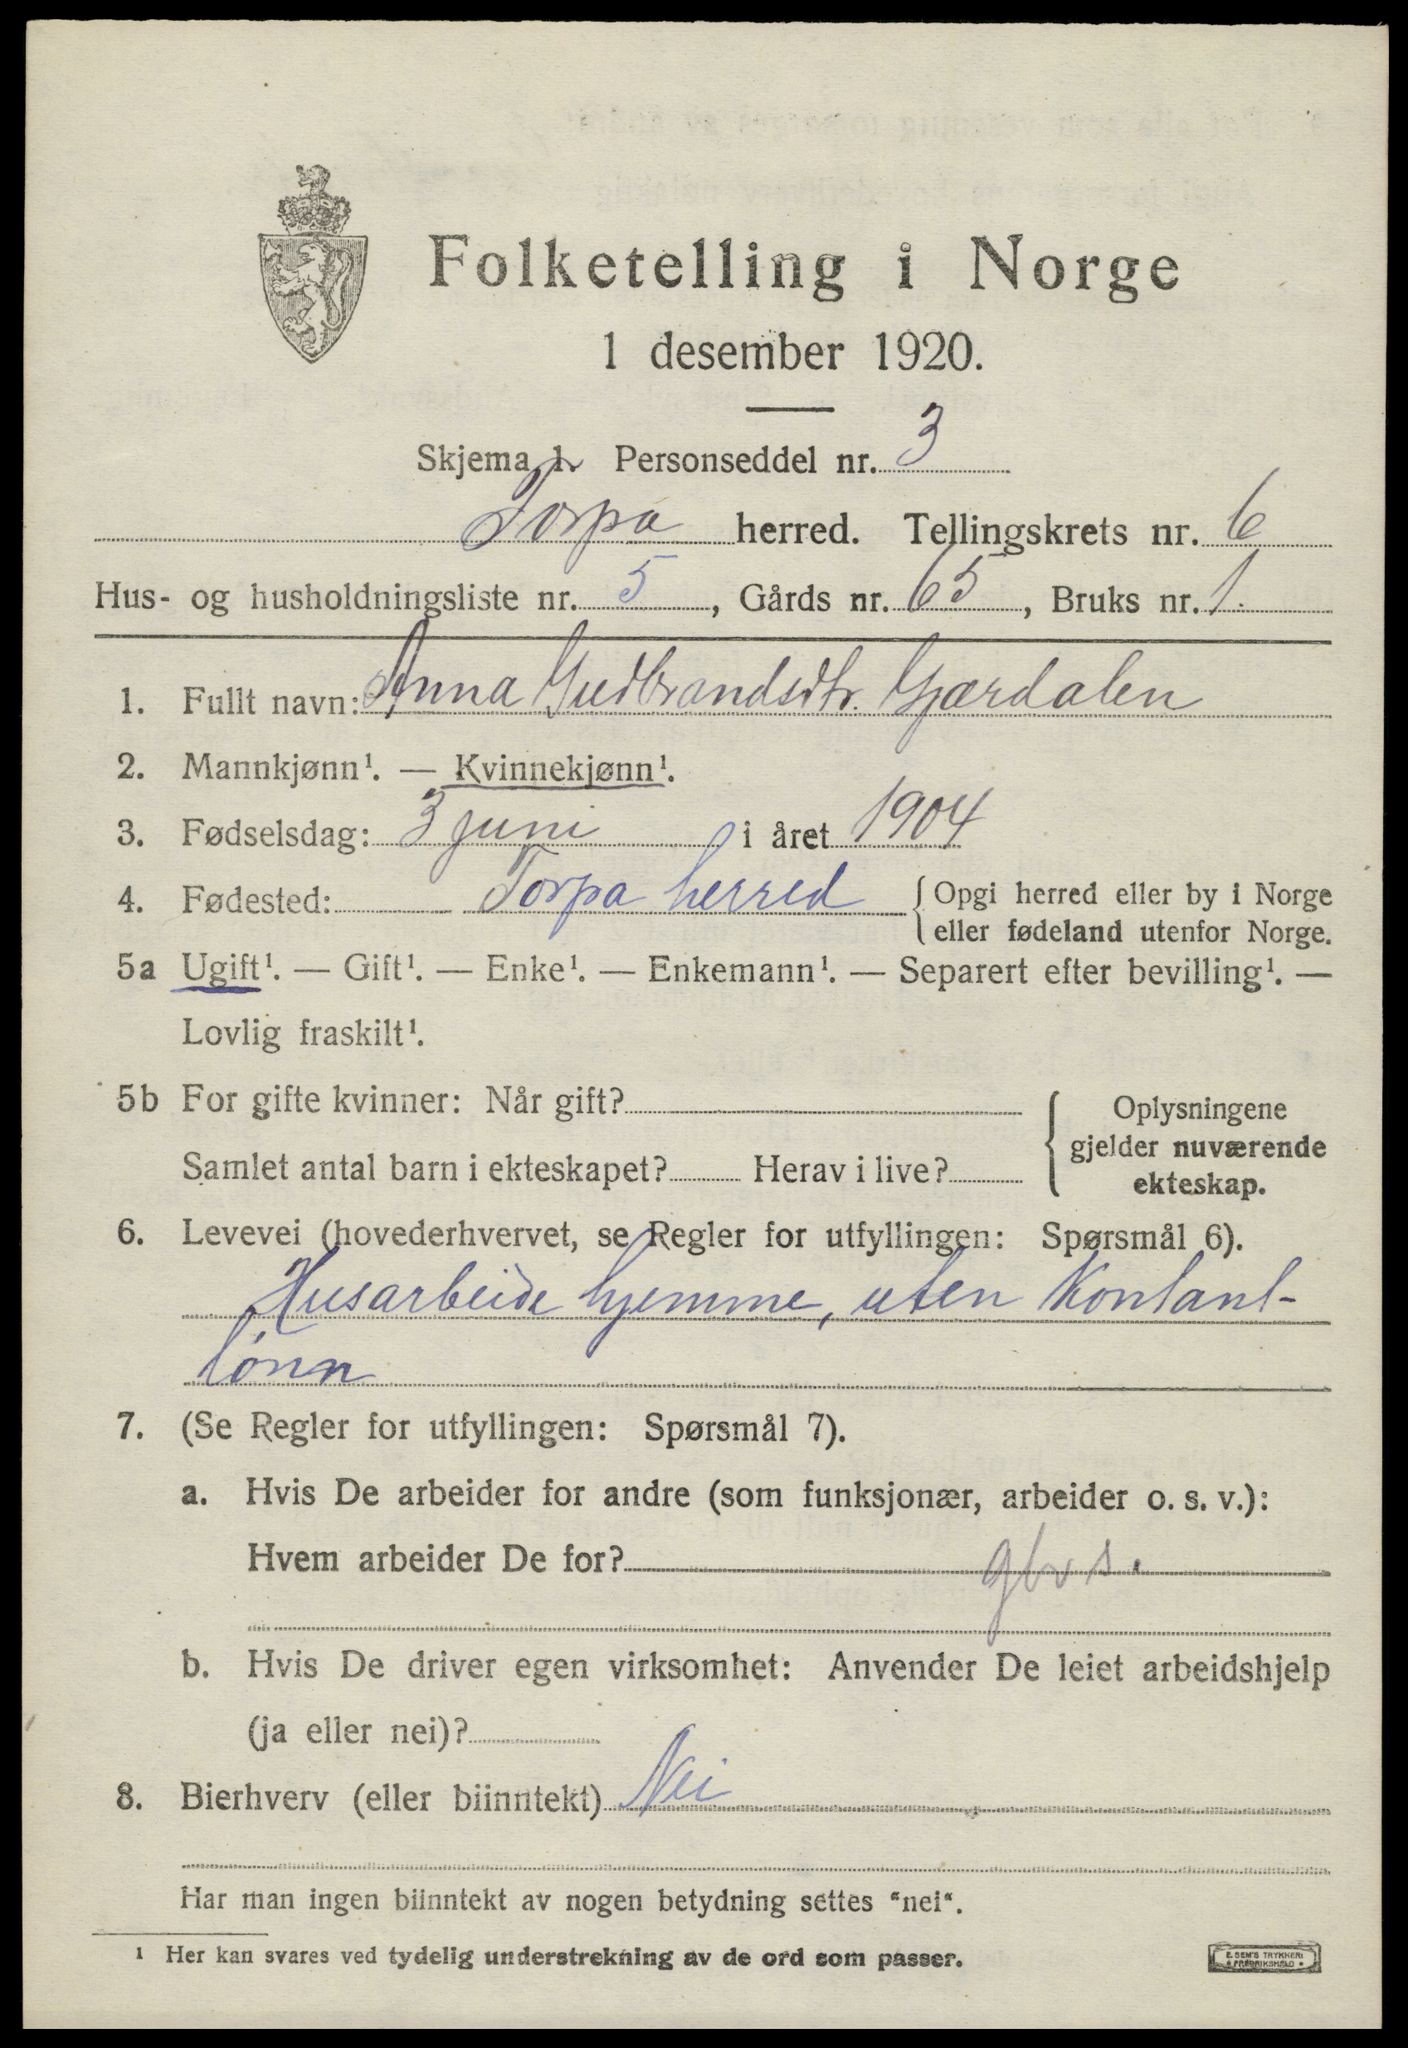 Folketelling i Norge
1 desember 1920.
Skjema 1. Personseddel nr. 3
Torpa herred. Tellingskrets nr. 6
Hus- og husholdningsliste nr. 5, Gårds nr. 65, Bruks nr. 1.
1. Fullt navn: Anna Gudbrandsdtr. Gjærdalen
2. Mannkjønn¹. — Kvinnekjønn¹.
3. Fødselsdag: 3 juni i året 1904
4. Fødested: Torpa herred { Opgi herred eller by i Norge
eller fødeland utenfor Norge.
5a Ugift¹. — Gift¹. — Enke¹. — Enkemann¹. — Separert efter bevilling¹. —
Lovlig fraskilt¹.
5b For gifte kvinner: Når gift? { Oplysningene
gjelder nuværende
Samlet antal barn i ekteskapet? Herav i live? ekteskap.
6. Levevei (hovederhvervet, se Regler for utfyllingen: Spørsmål 6).
Husarbeide hjemme, uten Kontant-
lønn
7. (Se Regler for utfyllingen: Spørsmål 7).
a. Hvis De arbeider for andre (som funksjonær, arbeider o. s. v.):
Hvem arbeider De for? gbrs.
b. Hvis De driver egen virksomhet: Anvender De leiet arbeidshjelp
(ja eller nei)?
8. Bierhverv (eller biinntekt) Nei
Har man ingen biinntekt av nogen betydning settes "nei".
¹ Her kan svares ved tydelig understrekning av de ord som passer.
E. SEM'S TRYKKERI
FREDRIKSHALD